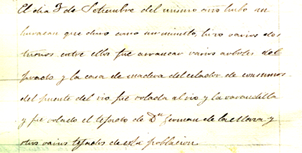 El dia 3 de Setiembre del mismo año hubo un
huracan que duro como un minuto, hizo varios des
trozos entre ellos fue arrancar varios arboles del
paseo y la casa de madera del celador de consumos
del puente del rio fue volada al rio y la barandilla
y fue volado el tejado de Dª
otros varios tejados de esta poblacion